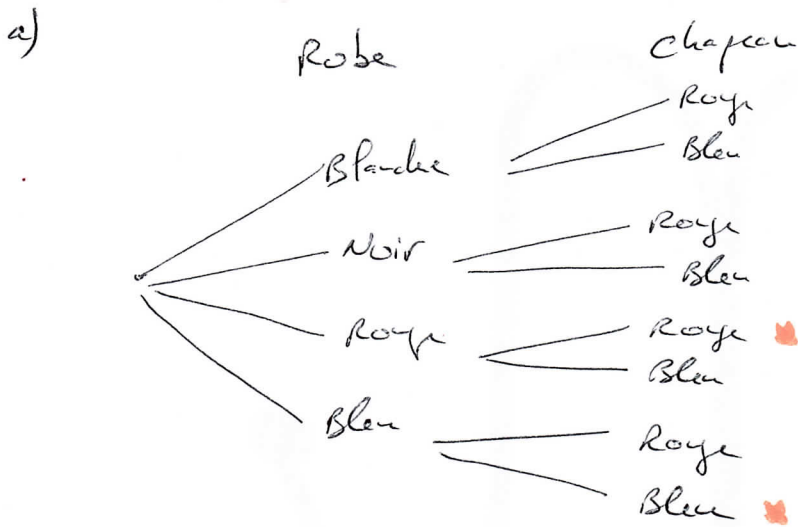 a)
Robe Chapeau
Blanche
Rouge
Bleu
Noir
Rouge
Bleu
Rouge
Rouge
Bleu
Bleu
Rouge
Bleu